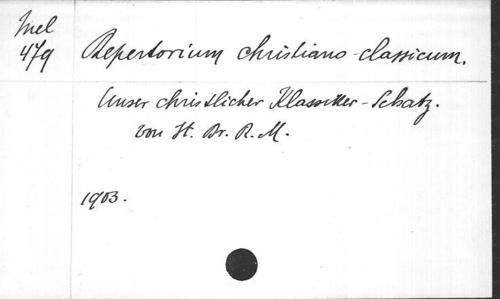 Mel
479
Repertorium christiano-classicum.
Unser christlicher Klassiker-Schatz.
von St. Br. R. M.
1903.